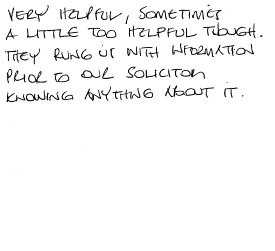 VERY HELPFUL, SOMETIMES
A LITTLE TOO HELPFUL THOUGH.
THEY RUNG US WITH INFORMATION
PRIOR TO OUR SOLICITOR
KNOWING ANYTHING ABOUT IT.